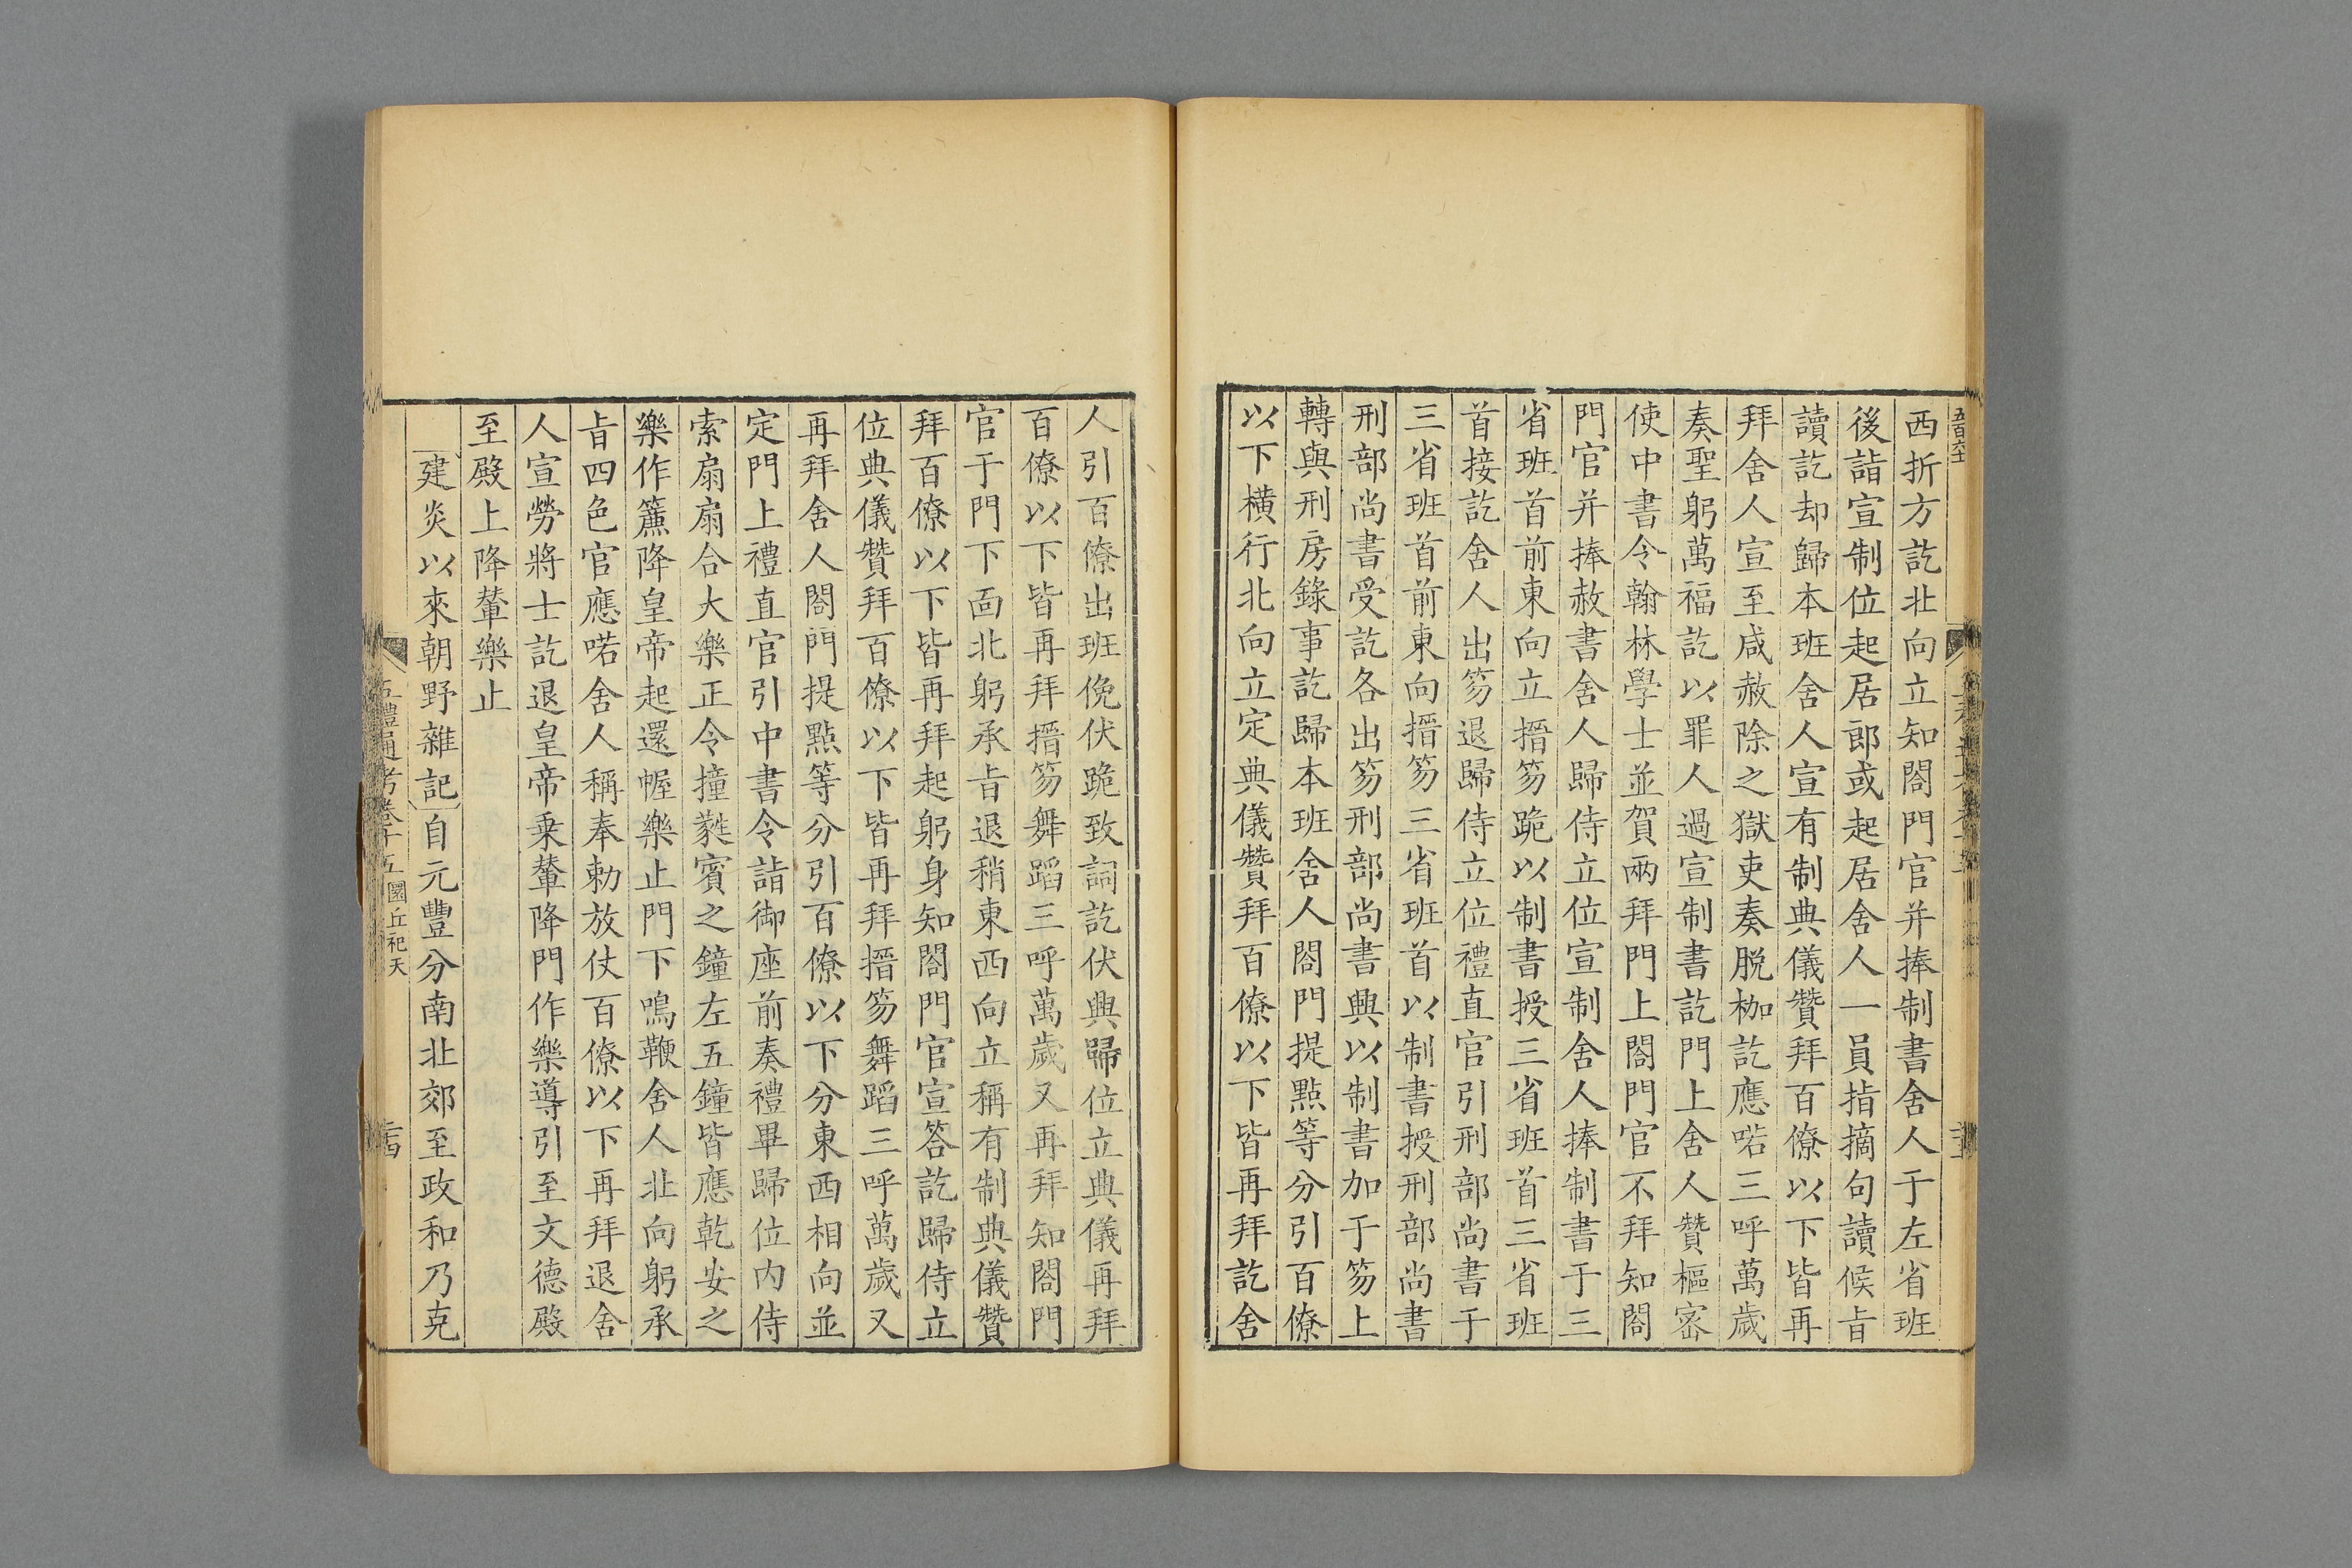 西折方訖北向立知閤門官并捧制書舍人于左省班
後詣宣制位起居郎或起居舍人一員指摘句讀候㫖
讀訖却歸本班舍人宣有制典儀贊拜百僚以下皆再
拜舍人宣至咸赦除之獄吏奏脱枷訖應喏三呼萬歲
奏聖躬萬福訖以罪人過宣制書訖門上舍人贊樞密
使中書令翰林學士並賀兩拜門上閤門官不拜知閤
門官并捧赦書舍人歸侍立位宣制舍人捧制書于三
省班首前東向立搢笏跪以制書授三省班首三省班
首接訖舍人出笏退歸侍立位禮直官引刑部尚書于
三省班首前東向搢笏三省班首以制書授刑部尚書
刑部尚書受訖各出笏刑部尚書興以制書加于笏上
轉與刑房錄事訖歸本班舍人閤門提點等分引百僚
以下橫行北向立定典儀贊拜百僚以下皆再拜訖舍
人引百僚出班俛伏跪致詞訖伏興歸位立典儀再拜
百僚以下皆再拜搢笏舞蹈三呼萬歲又再拜知閤門
官于門下面北躬承㫖退稍東西向立稱有制典儀贊
拜百僚以下皆再拜起躬身知閤門官宣答訖歸侍立
位典儀贊拜百僚以下皆再拜搢笏舞蹈三呼萬歲又
再拜舍人閤門提點等分引百僚以下分東西相向並
定門上禮直官引中書令詣御座前奏禮畢歸位内侍
索扇扇合大樂正令撞蕤賓之鐘左五鐘皆應乾安之
樂作簾降皇帝起還幄樂止門下鳴鞭舍人北向躬承
㫖四色官應喏舍人稱奉勅放仗百僚以下再拜退舍
人宣勞將士訖退皇帝乗輦降門作樂導引至文德殿
至殿上降輦樂止
建炎以來朝野雜記 自元豐分南北郊至政和乃克
五禮通考卷十五 圜丘祀天